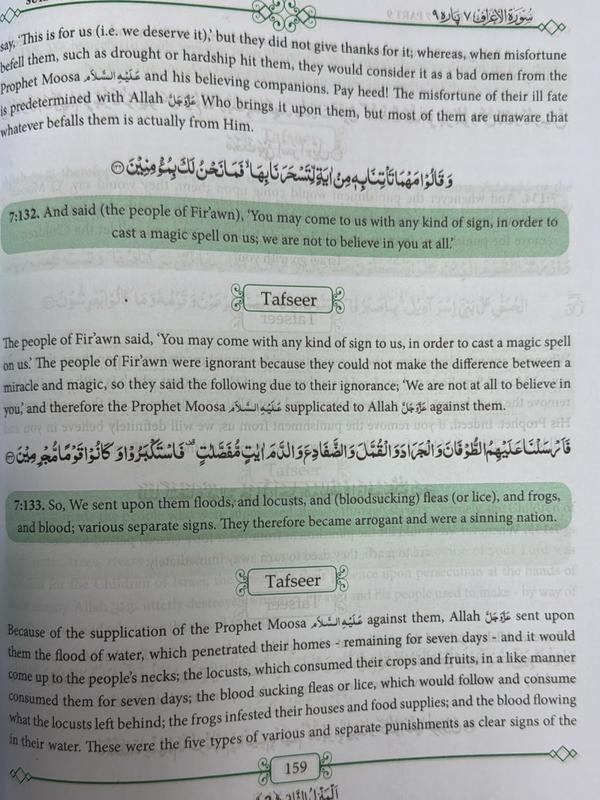 سُوْرَةُ الْاَعْرَاف ٧ پارہ ٩
say, 'This is for us (i.e. we deserve it),' but they did not give thanks for it; whereas, when misfortune
befell them, such as drought or hardship hit them, they would consider it as a bad omen from the
Prophet Moosa عَلَيْهِ السَّلَام and his believing companions. Pay heed! The misfortune of their ill fate
is predetermined with Allah عَزَّوَجَلَّ Who brings it upon them, but most of them are unaware that
whatever befalls them is actually from Him.
وَ قَالُوْا مَهْمَا تَاْتِنَا بِهٖ مِنْ اٰيَةٍ لِّتَسْحَرَنَا بِهَا ۙ فَمَا نَحْنُ لَكَ بِمُؤْمِنِيْنَ ﴿۱۳۲﴾
7:132. And said (the people of Fir'awn), 'You may come to us with any kind of sign, in order to
cast a magic spell on us; we are not to believe in you at all.'
Tafseer
The people of Fir'awn said, 'You may come with any kind of sign to us, in order to cast a magic spell
on us.' The people of Fir'awn were ignorant because they could not make the difference between a
miracle and magic, so they said the following due to their ignorance; 'We are not at all to believe in
you,' and therefore the Prophet Moosa عَلَيْهِ السَّلَام supplicated to Allah عَزَّوَجَلَّ against them.
فَاَرْسَلْنَا عَلَيْهِمُ الطُّوْفَانَ وَ الْجَرَادَ وَ الْقُمَّلَ وَ الضَّفَادِعَ وَ الدَّمَ اٰيٰتٍ مُّفَصَّلٰتٍ ۫ فَاسْتَكْبَرُوْا وَ كَانُوْا قَوْمًا مُّجْرِمِيْنَ ﴿۱۳۳﴾
7:133. So, We sent upon them floods, and locusts, and (bloodsucking) fleas (or lice), and frogs,
and blood; various separate signs. They therefore became arrogant and were a sinning nation.
Tafseer
Because of the supplication of the Prophet Moosa عَلَيْهِ السَّلَام against them, Allah عَزَّوَجَلَّ sent upon
them the flood of water, which penetrated their homes - remaining for seven days - and it would
come up to the people's necks; the locusts, which consumed their crops and fruits, in a like manner
consumed them for seven days; the blood sucking fleas or lice, which would follow and consume
what the locusts left behind; the frogs infested their houses and food supplies; and the blood flowing
in their water. These were the five types of various and separate punishments as clear signs of the
159